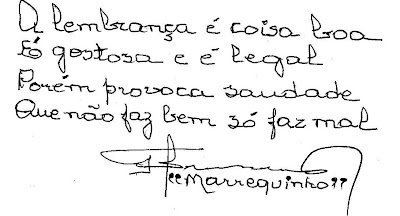 A lembrança é coisa boa
É gostosa e é legal
Porém provoca saudade
Que não faz bem só faz mal
"Marrequinho"